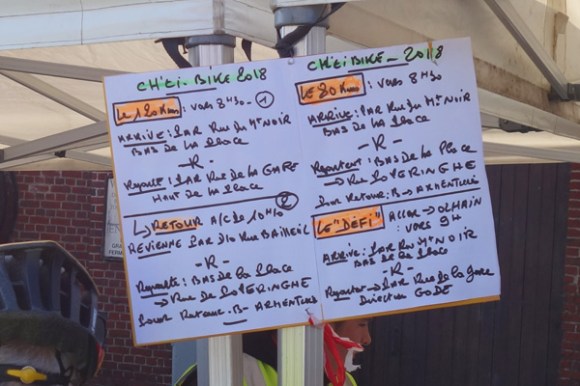 CH'ti-BIKE 2018
LE 120 Kms : VERS 8H30- 1
ARRIVÉ: PAR Rue du Mt NOIR
BAS DE LA PLACE
-R-
Repart: PAR Rue de la GARE
HAUT DE LA PLACE
2
RETOUR A/C de 10H10
REVIENNE PAR D10 Rue BAILLEUL
-R-
Reparte: BAS DE LA PLACE
→ Rue DE LOVERINGHE
POUR Retour. B- ARMENTIERES
CH'ti BIKE - 2018
LE 80 Kms : VERS 8H30
ARRIVE: PAR Rue du Mt NOIR
BAS DE LA PLACE
-R-
Repartent: BAS de la PLACE
→ Rue LOVERINGHE
POUR Retour: B→
LE "DÉFI" → OLHAIN
VERS 9H
ARRIVÉ: PAR Rue Mt NOIR
BAS DE LA PLACE
-R-
→ PAR Rue de la Gare
Direction